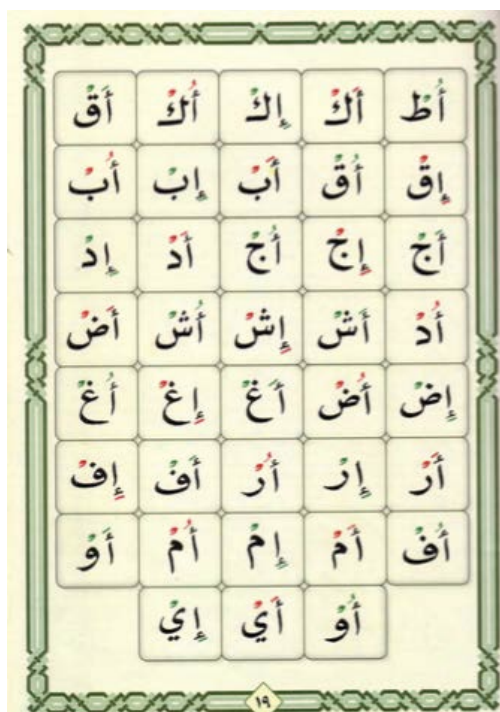 أُطْ أَكْ إِكْ أُكْ أَقْ
إِقْ أُقْ أَبْ إِبْ أُبْ
أَجْ إِجْ أُجْ أَدْ إِدْ
أُدْ أَشْ إِشْ أُشْ أَضْ
إِضْ أُضْ أَغْ إِغْ أُغْ
أَرْ إِرْ أُرْ أَفْ إِفْ
أُفْ أَمْ إِمْ أُمْ أَوْ
أُوْ أَيْ إِيْ
١٩